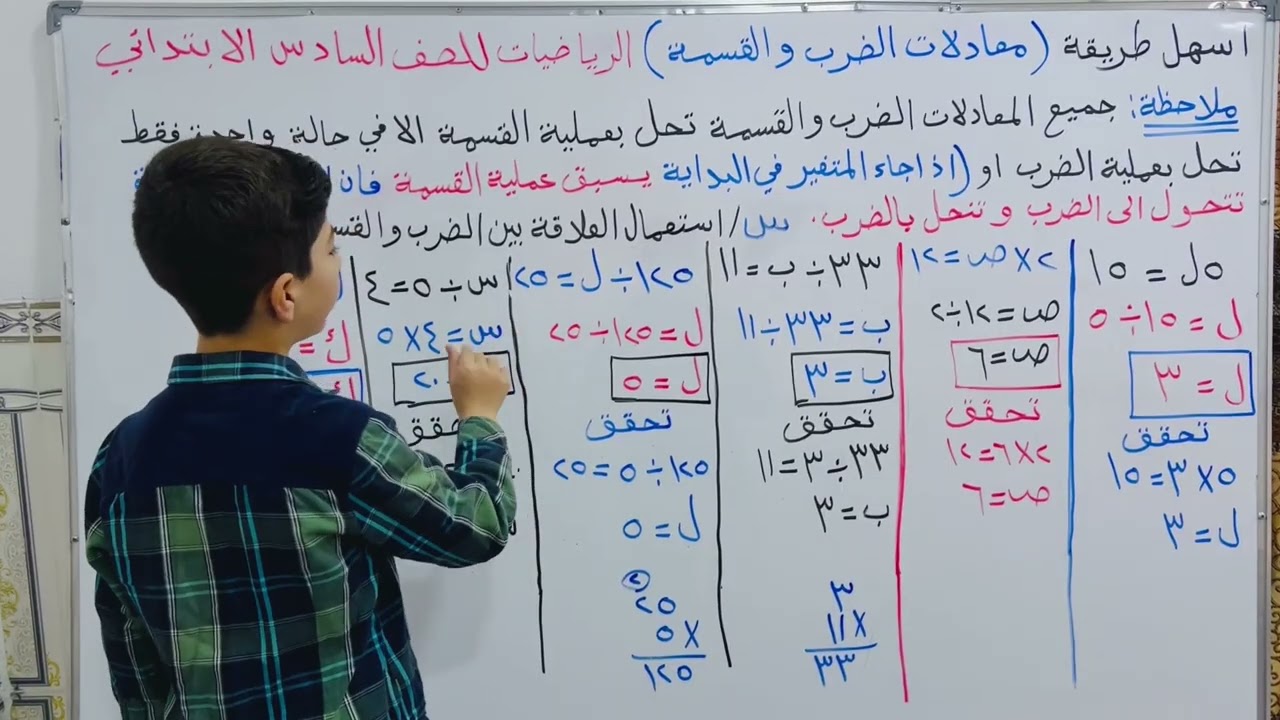 اسهل طريقة (معادلات الضرب والقسمة) الرياضيات للصف السادس الابتدائي
ملاحظة: جميع المعادلات الضرب والقسمة تحل بعملية القسمة الا في حالة واحدة فقط
تحل بعملية الضرب او (اذا جاء المتغير في البداية يسبق عملية القسمة فان
تتحول الى الضرب وتنحل بالضرب.
س/ استعمال العلاقة بين الضرب والقس
٥ل = ١٥
ل = ١٥ ÷ ٥
ل = ٣
تحقق
٥ × ٣ = ١٥
ل = ٣
٢ × ص = ١٢
ص = ١٢ ÷ ٢
ص = ٦
تحقق
٢ × ٦ = ١٢
ص = ٦
٣٣ ÷ ب = ١١
ب = ٣٣ ÷ ١١
ب = ٣
تحقق
٣٣ ÷ ٣ = ١١
ب = ٣
٣
١١ ×
٣٣
١٢٥ ÷ ل = ٢٥
ل = ١٢٥ ÷ ٢٥
ل = ٥
تحقق
١٢٥ ÷ ٥ = ٢٥
ل = ٥
٢
٢٥
٥ ×
١٢٥
س ÷ ٥ = ٤
س = ٤ × ٥
٢٠
ك =
ك